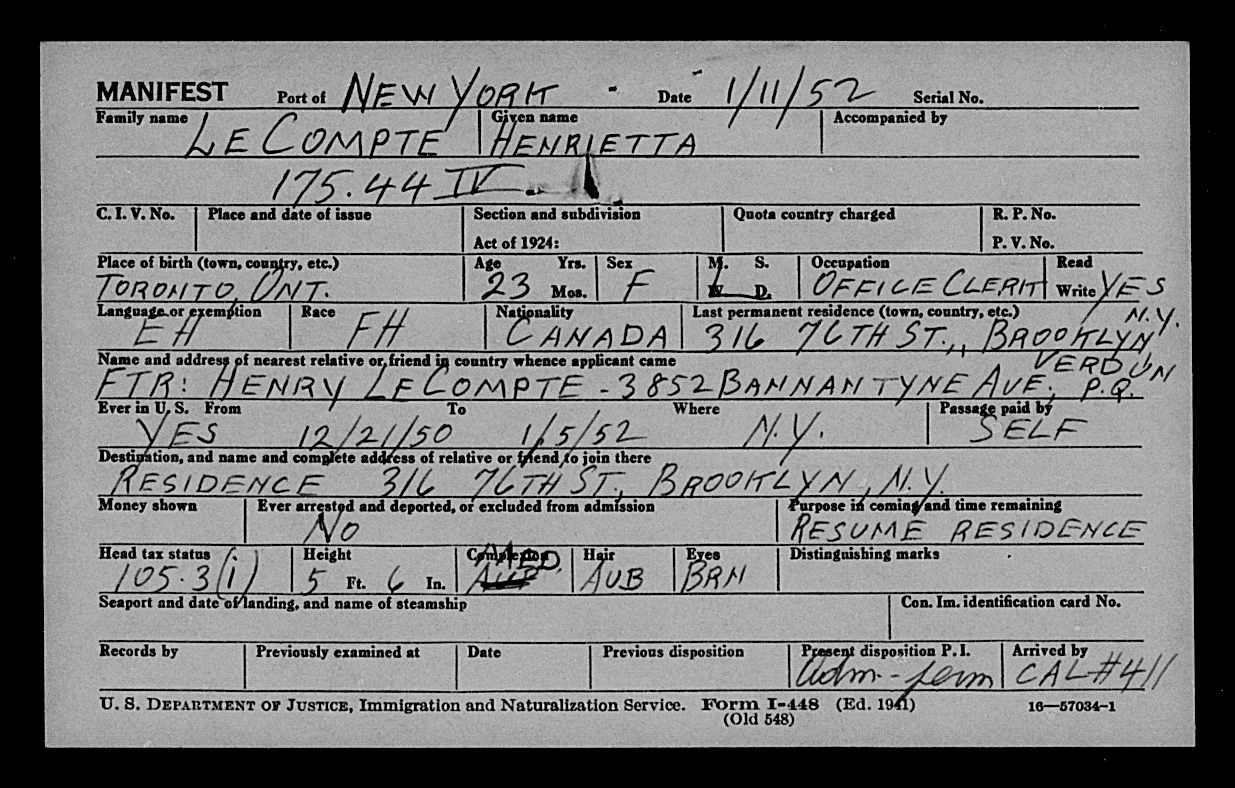 MANIFEST Port of NEW YORK - Date 1/11/52 Serial No.
Family name LE COMPTE Given name HENRIETTA Accompanied by
175.44 IV
C. I. V. No. Place and date of issue Section and subdivision Quota country charged R. P. No.
Act of 1924: P. V. No.
Place of birth (town, country, etc.) Age Yrs. Sex M. S. Occupation Read
TORONTO, ONT. 23 Mos. F W. D. OFFICE CLERK Write YES
Language or exemption Race Nationality Last permanent residence (town, country, etc.)
EH FH CANADA 316 76TH ST., BROOKLYN N.Y.
Name and address of nearest relative or friend in country whence applicant came
FTR: HENRY LE COMPTE - 3852 BANNANTYNE AVE, VERDUN P.Q.
Ever in U. S. From To Where Passage paid by
YES 12/21/50 1/5/52 N.Y. SELF
Destination, and name and complete address of relative or friend to join there
RESIDENCE 316 76TH ST., BROOKLYN, N.Y.
Money shown Ever arrested and deported, or excluded from admission Purpose in coming and time remaining
NO RESUME RESIDENCE
Head tax status Height Complexion Hair Eyes Distinguishing marks
105.3(i) 5 Ft. 6 In. MED. AUB BRN
Seaport and date of landing, and name of steamship Con. Im. identification card No.
Records by Previously examined at Date Previous disposition Present disposition P. I. Arrived by
Adm-perm CAL#411
U. S. DEPARTMENT OF JUSTICE, Immigration and Naturalization Service. Form I-448 (Ed. 1941) 16—57034-1
(Old 548)